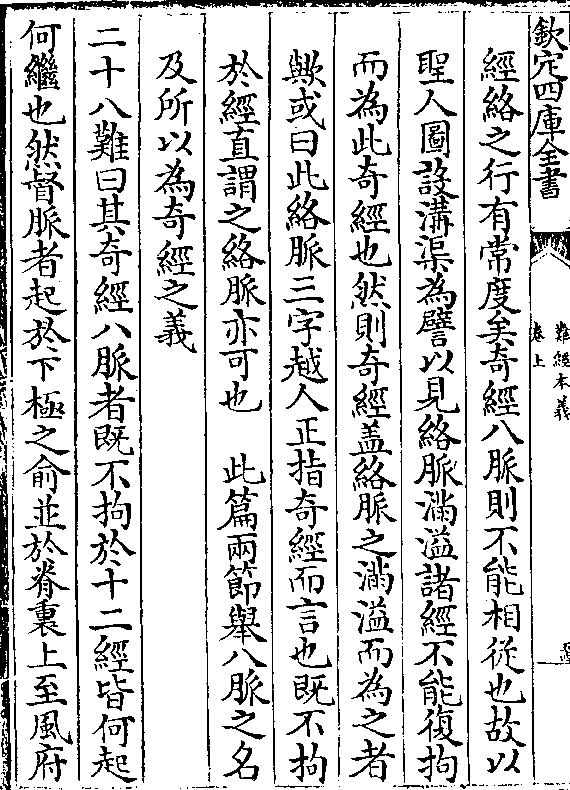 欽定四庫全書
難經本義
卷上
經絡之行有常度矣奇經八脈則不能相從也故以
聖人圖設溝渠為譬以見絡脈滿溢諸經不能復拘
而為此奇經也然則奇經盖絡脈之滿溢而為之者
歟或曰此絡脈三字越人正指奇經而言也既不拘
於經直謂之絡脈亦可也　此篇兩節舉八脈之名
及所以為奇經之義
二十八難曰其奇經八脈者既不拘於十二經皆何起
何繼也然督脈者起於下極之俞並於脊裏上至風府